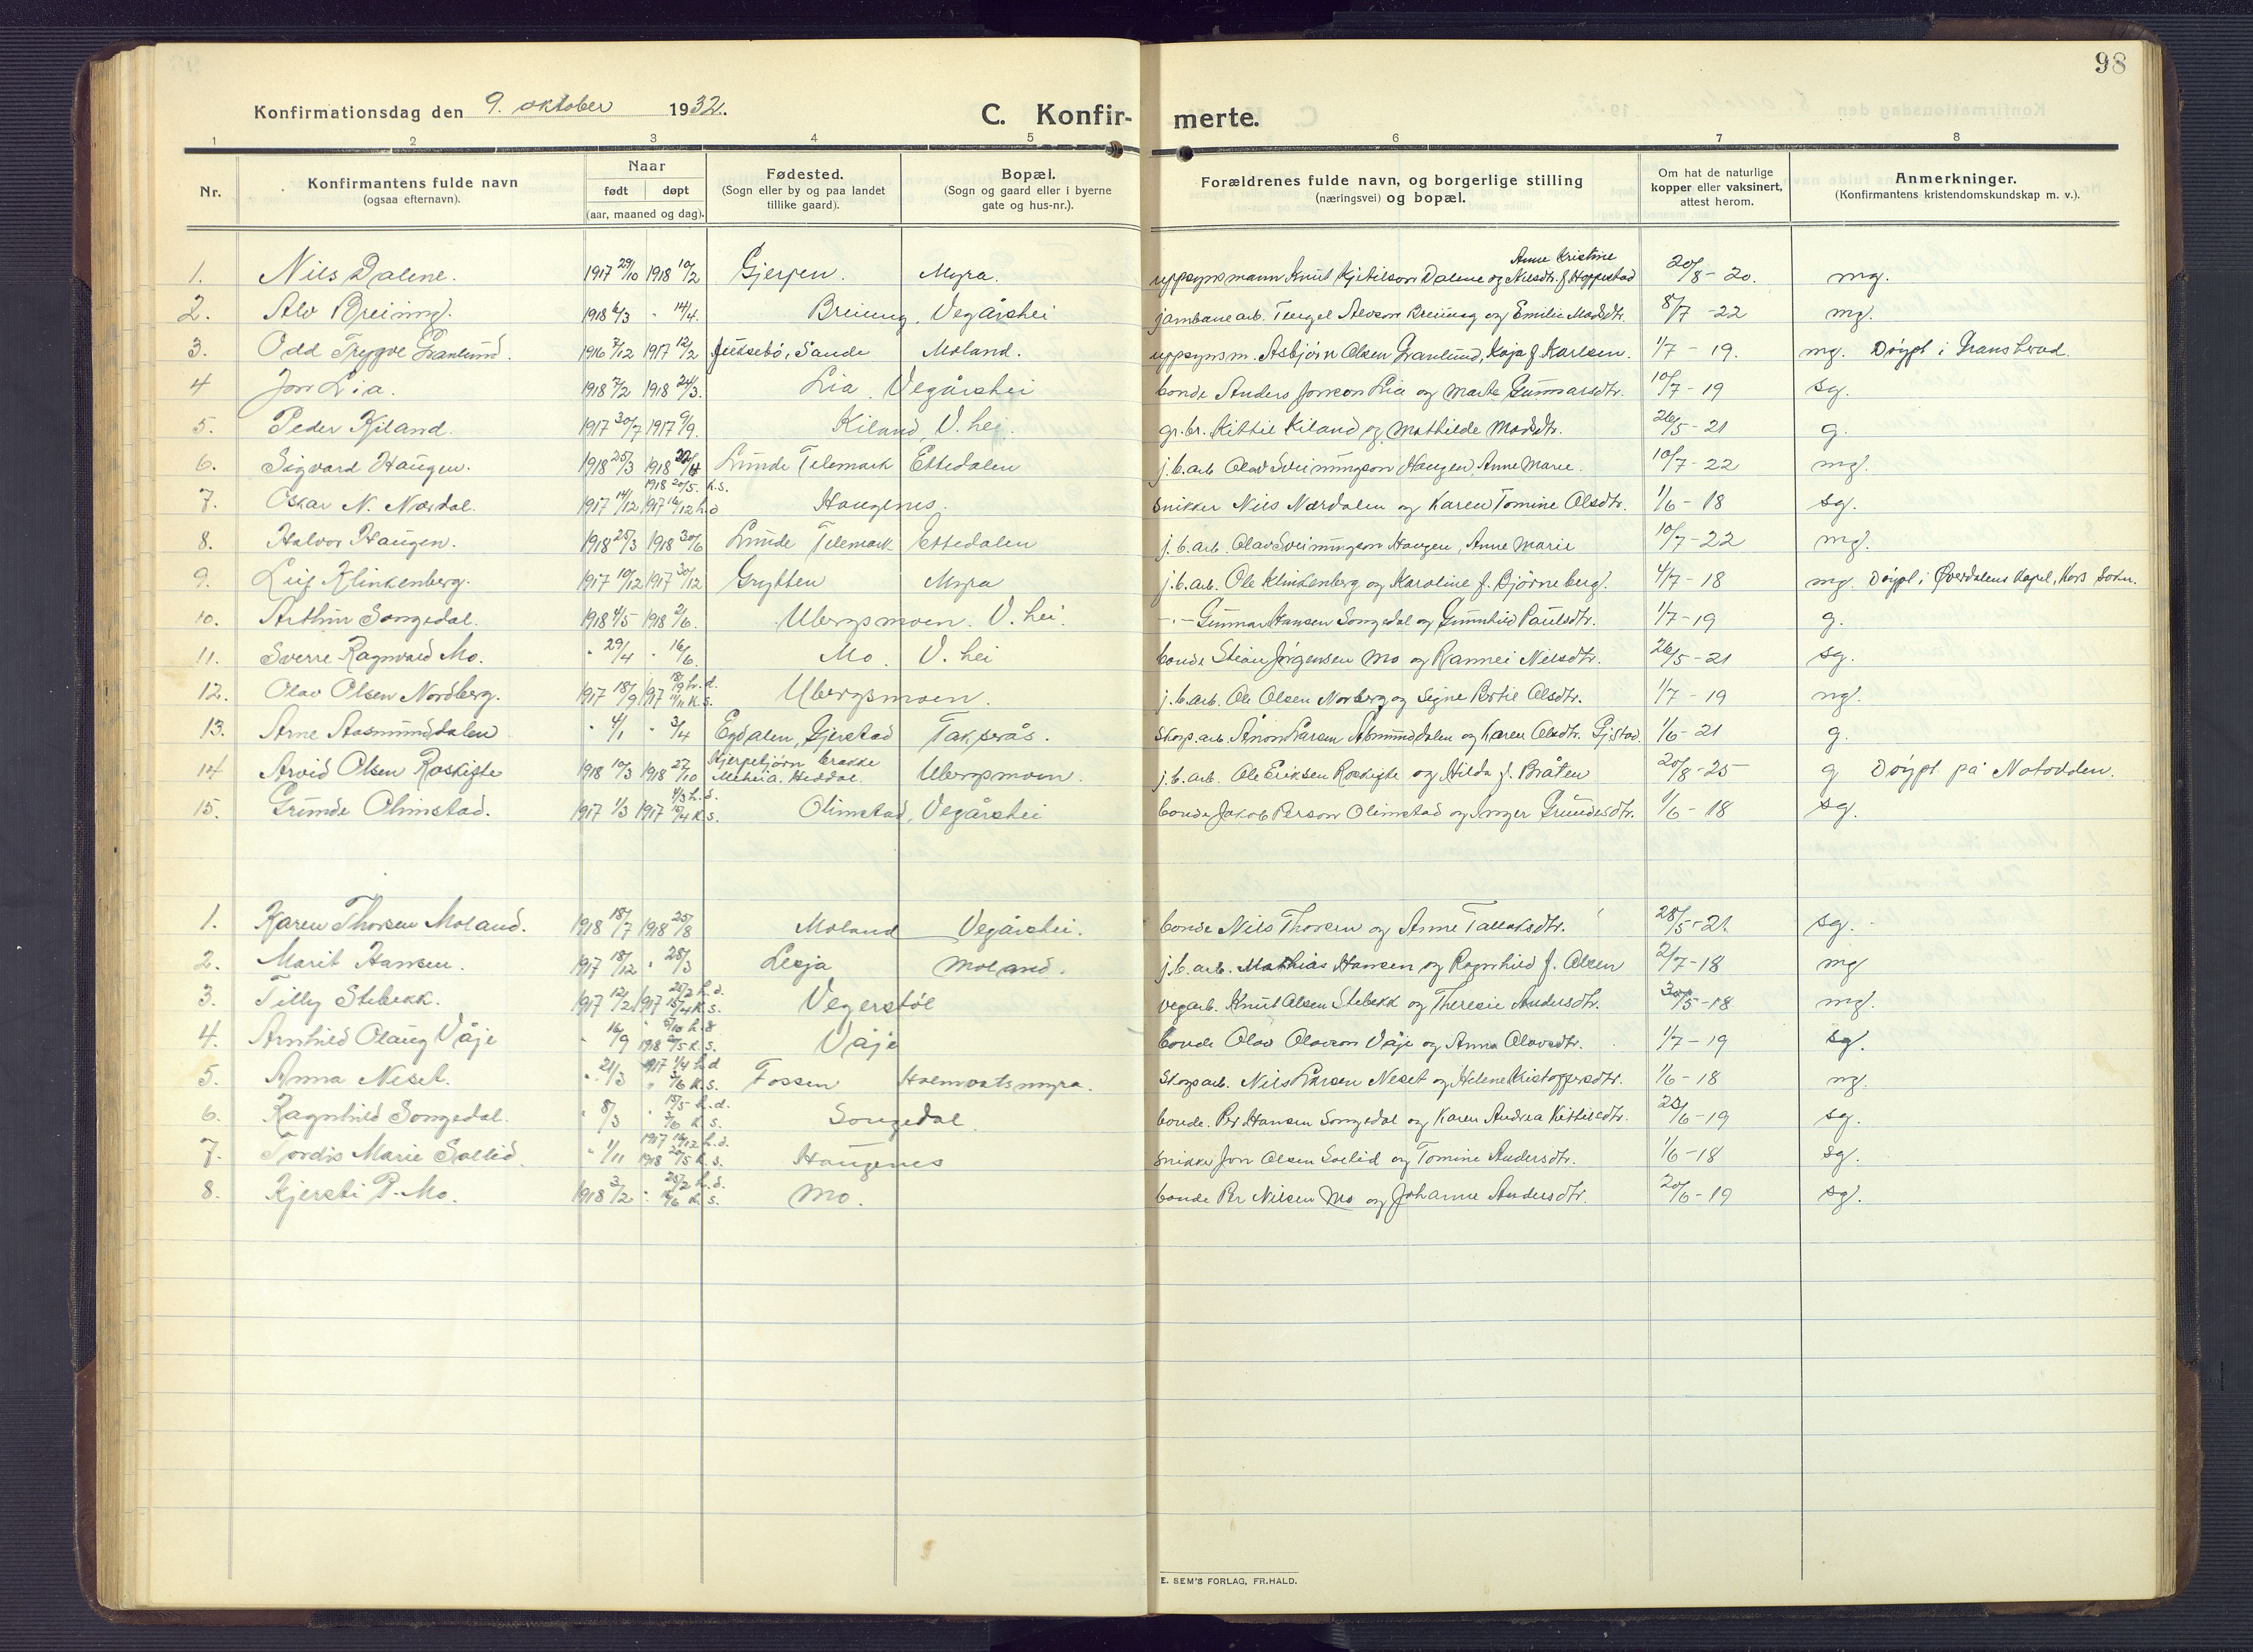 98
Konfirmationsdag den 9. oktober 1932.
C. Konfir- merte.
1 2 3 4 5 6 7 8
Nr. Konfirmantens fulde navn (ogsaa efternavn). Naar født døpt (aar, maaned og dag). Fødested. (Sogn eller by og paa landet tillike gaard). Bopæl. (Sogn og gaard eller i byerne gate og hus-nr.). Forældrenes fulde navn, og borgerlige stilling (næringsvei) og bopæl. Om hat de naturlige kopper eller vaksinert, attest herom. Anmerkninger. (Konfirmantens kristendomskundskap m. v.).
1. Nils Dalene. 1917 29/10 1918 10/2 Gjerpen. Myra. uppsynsmann Knut Kjetilson Dalene og Anne Kristine Nilsdtr. f. Hoppestad 20/8 - 20. mg.
2. Alv Breiung. 1918 6/3 - 14/4. Breiung, Vegårshei jambanearb. Tengel Alvson Breiung og Emilie Madsdtr. 8/7 - 22 mg.
3. Odd Trygve Granlund. 1916 7/12 1917 12/2 Juksebö, Saude Moland. uppsynsm. Asbjörn Olsen Granlund, Kaja f. Karlsen. 1/7 - 19. mg. Döypt i Gransherad.
4 Jon Lia. 1918 7/2 1918 24/3. Lia, Vegårshei bonde Anders Jonson Lia og Marte Gunnarsdtr. 10/7 - 19 sg.
5. Peder Kiland. 1917 30/7 1917 9/9. Kiland, V. hei. gr.br. Kittil Kiland og Mathilde Madsdtr. 26/5 - 21 g.
6. Sigvard Haugen. 1918 25/3 1918 Lunde Telemark Ettedalen j.b.arb. Olav Sveinungson Haugen, Anne Marie. 10/7 - 22 mg.
7. Oskar N. Nærdal. 1917 14/12 1918 20/5. k.s. 1917 16/12 h.d Haugenes. snikker Nils Nærdalen og Karen Tomine Olsdtr. 1/6 - 18 sg.
8. Halvor Haugen. 1918 25/3 1918 30/6 Lunde Telemark Ettedalen j.b.arb. Olav Sveinungson Haugen, Anne Marie 10/7 - 22 mg.
9. Leif Klinkenberg. 1917 10/12 1917 30/12 Grytten Myra j.b.arb. Ole Klinkenberg og Karoline f. Björneberg. 4/7 - 18 mg. Döypt i Øverdalens Kapel, Kors Sokn.
10. Arthur Songedal. 1918 4/5 1918 2/6. Ubergsmoen. V. hei. -.- Gunnar Hansen Songedal og Gunnhild Paulsdtr. 1/7 - 19 g.
11. Sverre Ragnvald Mo. " 29/4 " 16/6. Mo. V. hei bonde Stian Jörgensen Mo og Rannei Nilsdtr. 26/5 - 21 sg.
12. Olav Olsen Nordberg. 1917 18/9 1917 18/9 h.d. 4/11 k.s. Ubergsmoen. j.b.arb. Ole Olsen Norberg og Signe Bertie Olsdtr. 1/7 - 19 ng.
13. Arne Aasmunddalen " 4/1 " 3/4 Egdalen, Gjerstad Takserås. skogs.arb. Ånon Larsen Åsmunddalen og Karen Olsdtr. Gjstad. 1/6 - 21 g.
14 Arvid Olsen Roskifte 1918 10/3 1918 27/10 Kjerpebjörn brakke Meheia, Heddal. Ubergsmoen. j.b.arb. Ole Eriksen Roskifte og Hilda f. Bråten 20/8 - 25 g Döypt på Notodden.
15. Grunde Olimstad. 1917 1/3 1917 4/3 h.d. 15/4 k.s. Olimstad, Vegårshei bonde Jakob Person Olimstad og Inger Grundesdtr. 1/6 - 18 sg.
1. Karen Thorsen Moland. 1918 18/7 1918 25/8 Moland Vegårshei. bonde Nils Thorsen og Anne Tallaksdtr. 28/5 - 21. sg.
2. Marit Hansen. 1917 18/12 " 28/3 Lesja Moland. j.b.arb. Mathias Hansen og Ragnhild f. Olsen 2/7 - 18 mg
3. Tilly Stebekk. 1917 12/2 1917 25/2 h.d. 15/4 k.s. Vegerstöl vegarb. Knut Olsen Stebekk og Theresie Andersdtr. 30/5 - 18 mg.
4. Arnhild Olaug Våje " 16/9 1918 20/5 k.s. Våje bonde Olav Olavson Våje og Anna Olavsdtr. 1/7 - 19 sg.
5. Anna Neset. " 21/3 1917 1/4 h.d " 3/6 k.s. Fossen Holmvatsmyra. skogsarb. Nils Larsen Neset og Helene Kristoffersdtr. 1/6 - 18 ng.
6. Ragnhild Songedal. " 8/3 " 15/5 h.d. 3/6 k.s. Songedal. bonde. Per Hansen Songedal og Karen Andrea Kittilsdtr. 20/6 - 19 sg.
7. Tordis Marie Sollid. " 1/11 1917 16/12 h.d. 1918 20/5 k.s. Haugenes snikker Jon Olsen Sollid og Tomine Andersdtr. 1/6 - 18 sg.
8. Kjersti P. Mo. 1918 3/2 " 25/2 h.d. 16/6 k.s. Mo. bonde Per Nilsen Mo og Johanne Andersdtr. 20/6 - 19 sg.
E. SEM'S FORLAG, FR.HALD.